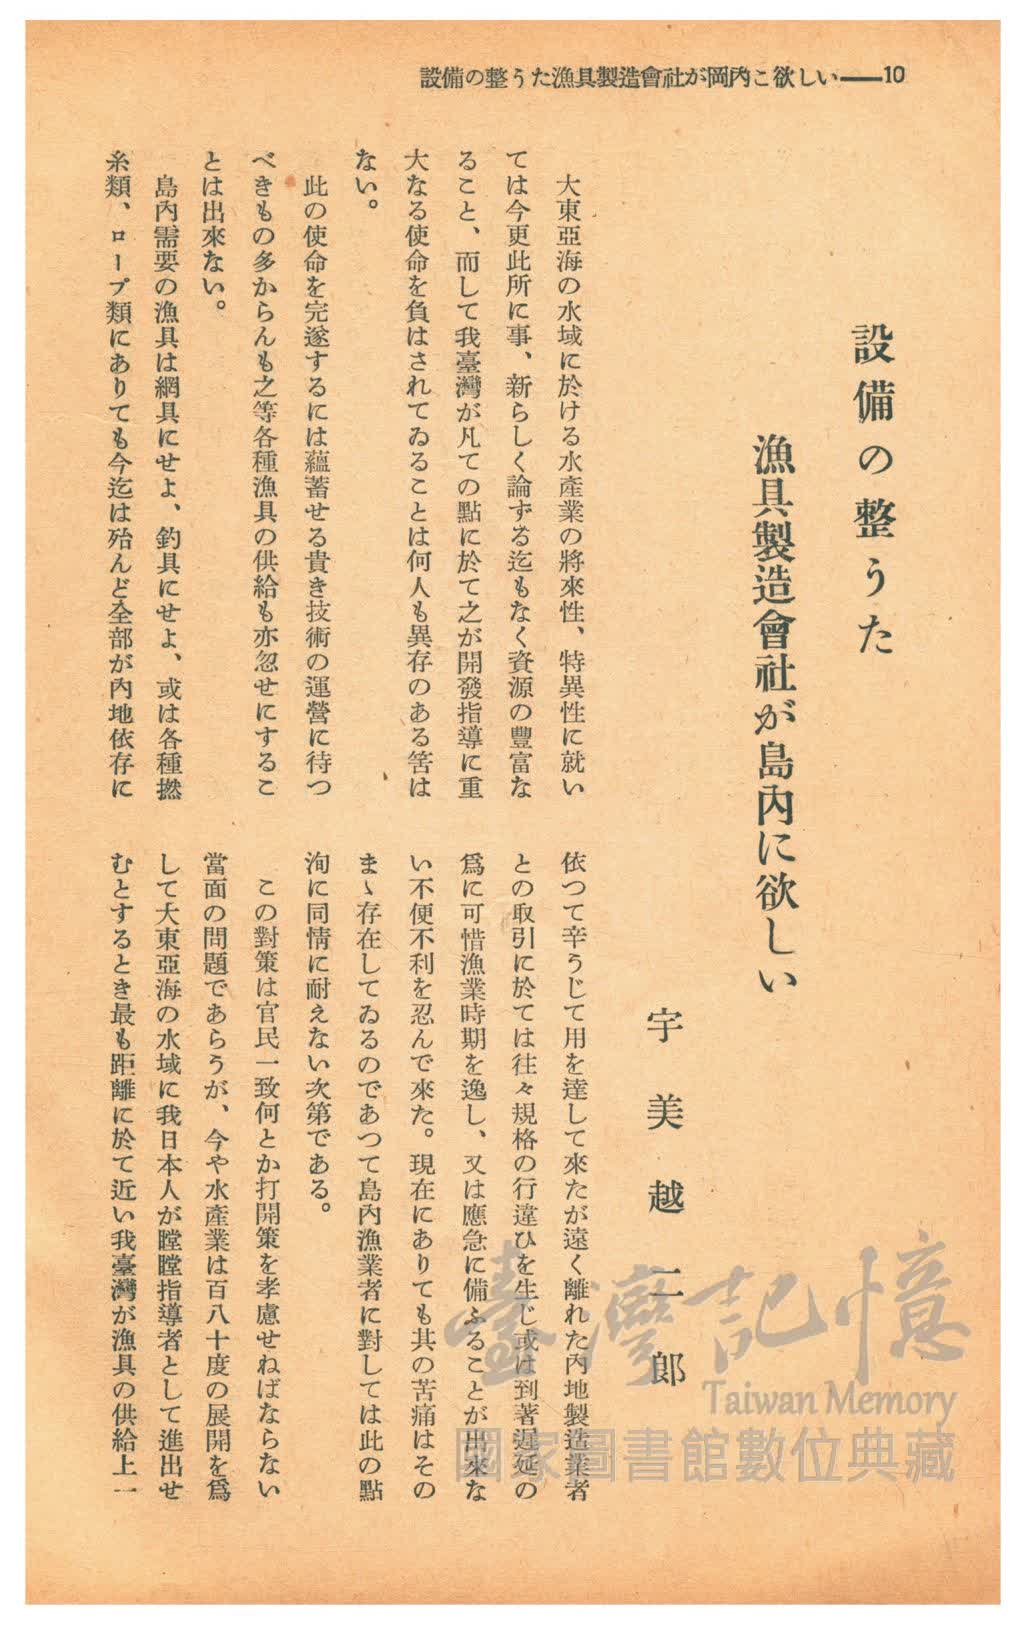 設備の整うた漁具製造會社が岡內こ欲しい——10
設備の整うた
漁具製造會社が島內に欲しい
宇美越二郎
大東亞海の水域に於ける水產業の將來性、特異性に就い
ては今更此所に事、新らしく論ずる迄もなく資源の豐富な
ること、而して我臺灣が凡ての點に於て之が開發指導に重
大なる使命を負はされてゐることは何人も異存のある筈は
ない。
此の使命を完遂するには蘊蓄せる貴き技術の運營に待つ
べきもの多からんも之等各種漁具の供給も亦忽せにするこ
とは出來ない。
島內需要の漁具は網具にせよ、釣具にせよ、或は各種撚
糸類、ロープ類にありても今迄は殆んど全部が內地依存に
依つて辛うじて用を達して來たが遠く離れた內地製造業者
との取引に於ては往々規格の行違ひを生じ或は到著遲延の
爲に可惜漁業時期を逸し、又は應急に備ふることが出來な
い不便不利を忍んで來た。現在にありても其の苦痛はその
まゝ存在してゐるのであつて島內漁業者に對しては此の點
洵に同情に耐えない次第である。
この對策は官民一致何とか打開策を孝慮せねばならない
當面の問題であらうが、今や水產業は百八十度の展開を爲
して大東亞海の水域に我日本人が瞠瞠指導者として進出せ
むとするとき最も距離に於て近い我臺灣が漁具の供給上一
臺灣記憶
Taiwan Memory
國家圖書館數位典藏